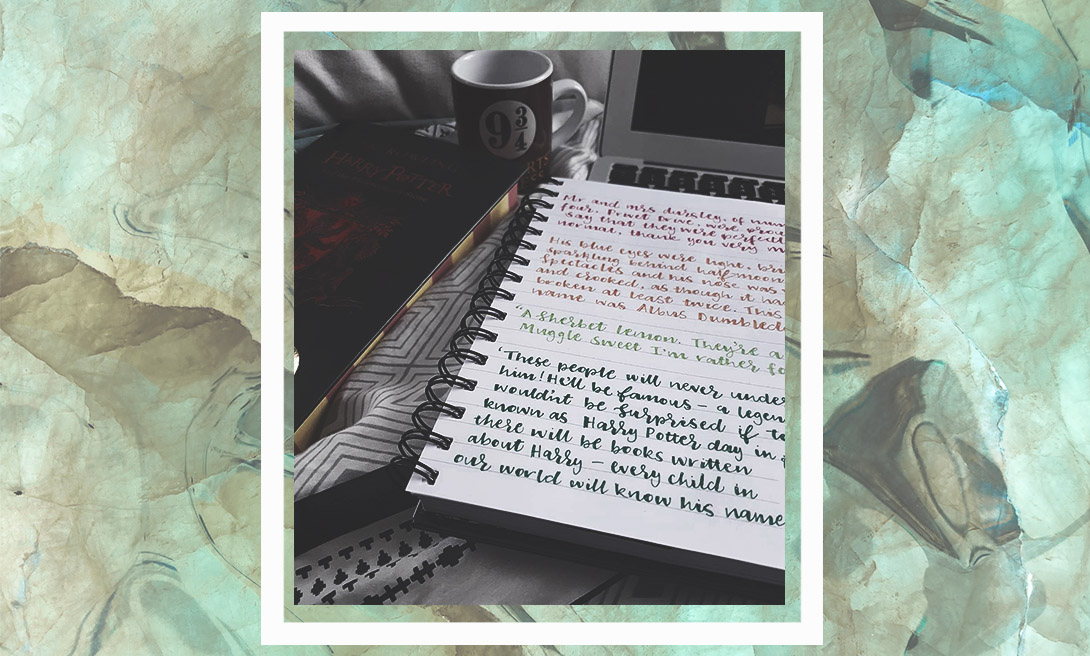 9 3/4
HARRY POTTER
Mr and mrs dursley, of
four, Privet Drive, were
say that they were perfectl
normal, thank you very m
His blue eyes were light, br
sparkling behind half-moon
spectacles and his nose was
and crooked, as though it ha
broken at least twice. This
name was Albus Dumbled
"A Sherbet Lemon. They're a
Muggle sweet I'm rather fo
'These people will never under
him! He'll be famous – a legen
wouldn't be surprised if to
known as Harry Potter day in
there will be books written
about Harry – every child in
our world will know his name